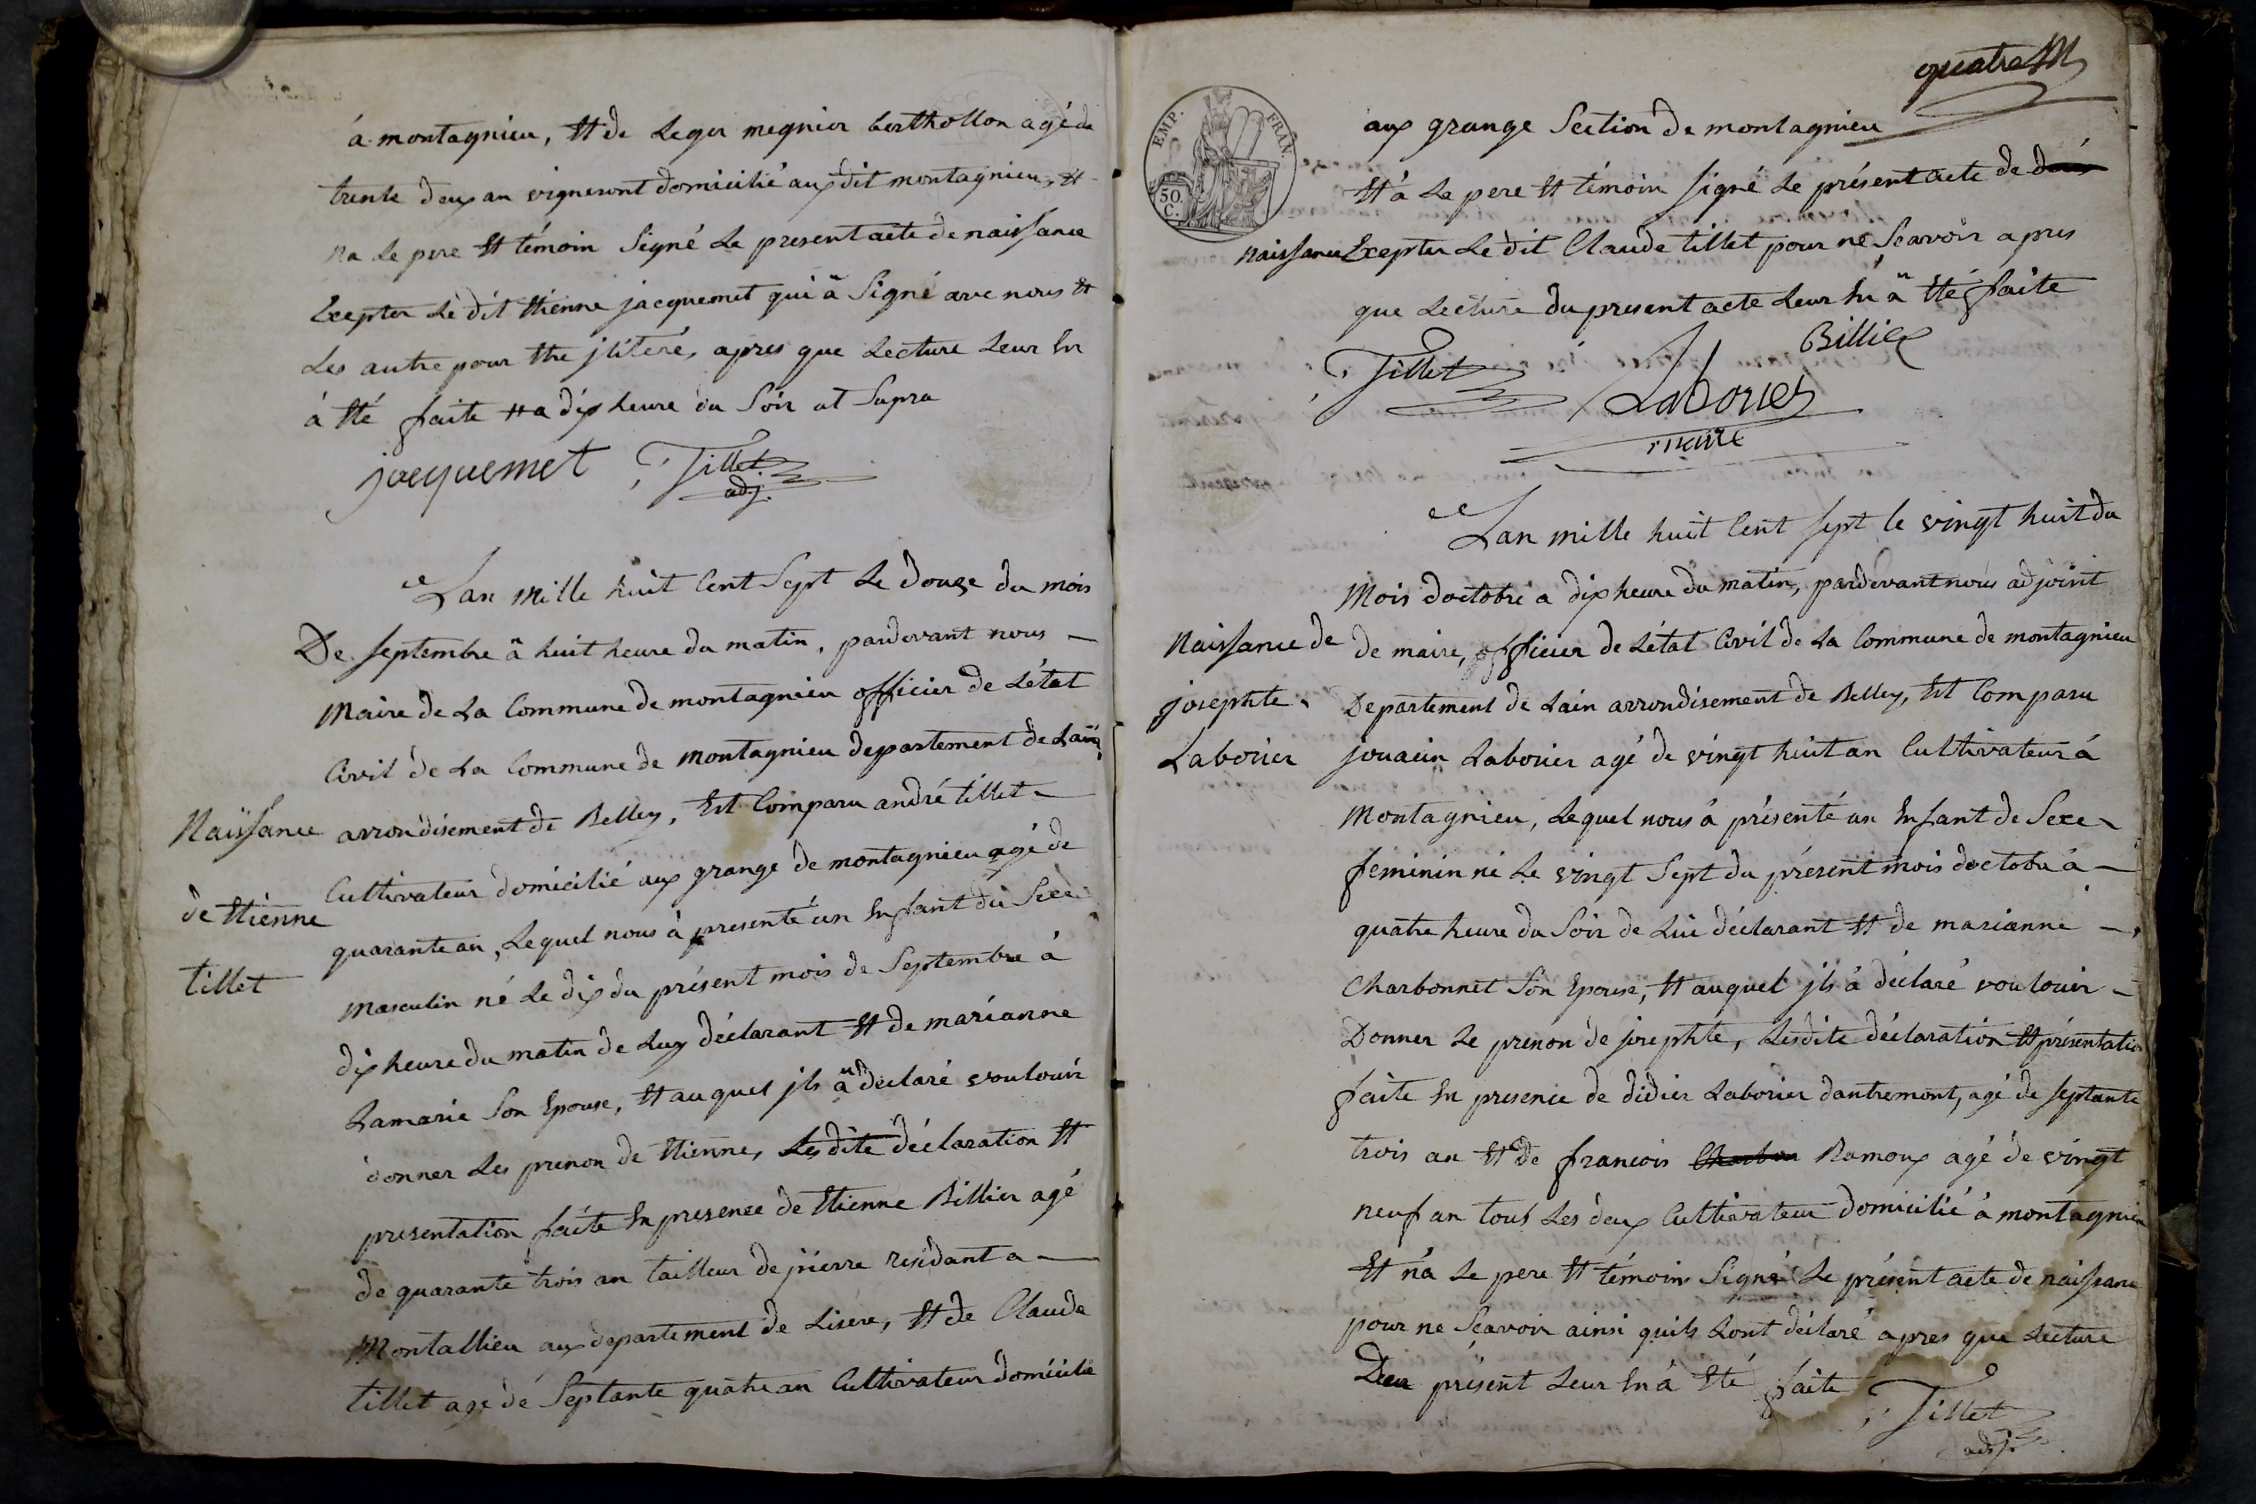 à montagnieu, Et de Leger megnier berthollon agé de
trente deux an vigneront domicilié aux dit montagnieu, et
na Le pere Et témoin Signé Le present acte de naissance
Excepter Le dit Etienne jacquemet qui à Signé avc nous Et
Les autre pour Etre jlitere, apres que Lecture Leur En
à Eté faite Et a dix heure du Soir ut Supra
jacquemet Tillet
adj.
Lan Mille huit Cent Sept Le douze du mois
De septembre à huit heure du matin, pardevant nous
Maire de La Commune de montagnieu officier de Létat
Civil de La Commune de montagnieu departement de Lain
Naissance
de Etienne
tillet
arrondisement de Belley, Est Comparu andré tillet
Cultivateur domicilié aux grange de montagnieu agé de
quarante an, Lequel nous à presenté un Enfant du Sexe
Masculin né Le dix du présent mois de Septembre à
dix heure du matin de Luy déclarant Et de marianne
Lamarie Son Epouse, Et auquel jls a déclaré voulouir
donner Les prenon de Etienne, Lesdite déclaration Et
presentation faite En presence de Etienne Billier agé
de quarante trois an tailleur de pierre residant a
Montallieu aux departement de Lisere, Et de Claude
tillet age de Septante quatre an Cultivateur domicilié
quatre
EMP. FRAN.
50.
C.
aux grange Section de montagnieu
Et à Le pere Et témoin signé Le présent acte de
naissance Excepter Le dit Claude tillet pour ne Scavoir apres
que Lecture du present acte Leur En à Eté faite
Billier
Tillet Laborier
maire
Lan mille huit Cent sept le vingt huit du
Mois doctobre a dix heure du matin, pardevant nous adjoint
Naissance de
josephte
Laborier
de maire, officier de Létat Civil de La Commune de montagnieu
Departement de Lain arrondisement de Belley, Est Comparu
jouacin Laborier agé de vingt huit an Cultivateur á
Montagnieu, Lequel nous á présenté un Enfant de Sexe
feminin né Le vingt Sept du présent mois doctobre á
quatre heure du Soir de Lui déclarant Et de marianne
Charbonnet Son Epouse, Et auquel jls à déclaré voulouir
Donner Le prénon de josephte, Lesdite déclaration Et présentation
faite En presence de didier Laborier dantremont, agé de septante
trois an Et de francois Charbon Ramoux agé de vingt
neuf an tous Les deux Cultivateur domicilié à montagnieu
Et ná Le pere Et témoin Signé Le présent acte de naissance
pour ne Scavoir ainsi quils Lont déclaré apres que Lecture
Deu présent Leur En á Eté faite
Tillet
adj.